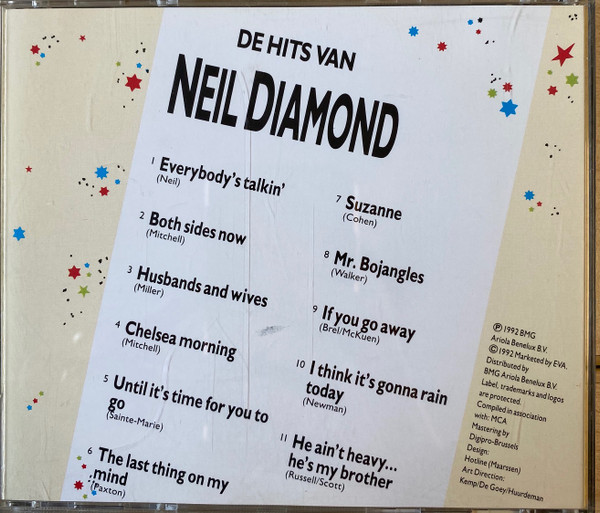 DE HITS VAN
NEIL DIAMOND
1 Everybody's talkin'
(Neil)
2 Both sides now
(Mitchell)
3 Husbands and wives
(Miller)
4 Chelsea morning
(Mitchell)
5 Until it's time for you to
go
(Sainte-Marie)
6 The last thing on my
mind
(Paxton)
7 Suzanne
(Cohen)
8 Mr. Bojangles
(Walker)
9 If you go away
(Brel/McKuen)
10 I think it's gonna rain
today
(Newman)
11 He ain't heavy...
he's my brother
(Russell/Scott)
℗ 1992 BMG
Ariola Benelux B.V.
© 1992 Marketed by EVA.
Distributed by
BMG Ariola Benelux B.V.
Label, trademarks and logos
are protected.
Compiled in association
with: MCA
Mastering by
Digipro-Brussels
Design:
Hotline (Maarssen)
Art Direction:
Kemp/De Goey/Huurdeman